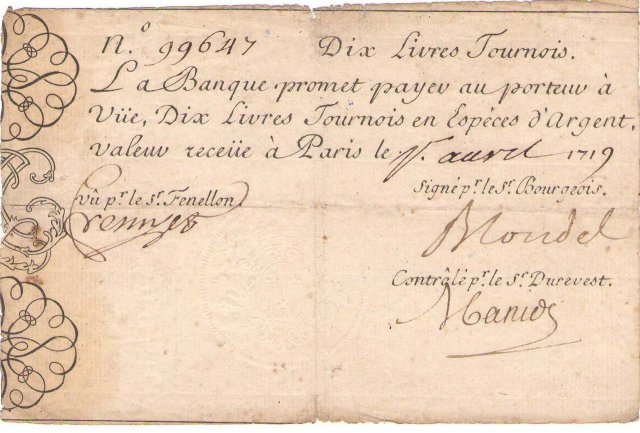 N.º 99647 Dix Livres Tournois.
La Banque promet payer au porteur à
Vüe, Dix Livres Tournois en Espèces d'Argent,
valeur receüe à Paris le 1r. avril 1719
Vû pr. le Sr. Fenellon.
Signé pr. le Sr. Bourgeois.
Contrôlé pr. le Sr. Durevest.